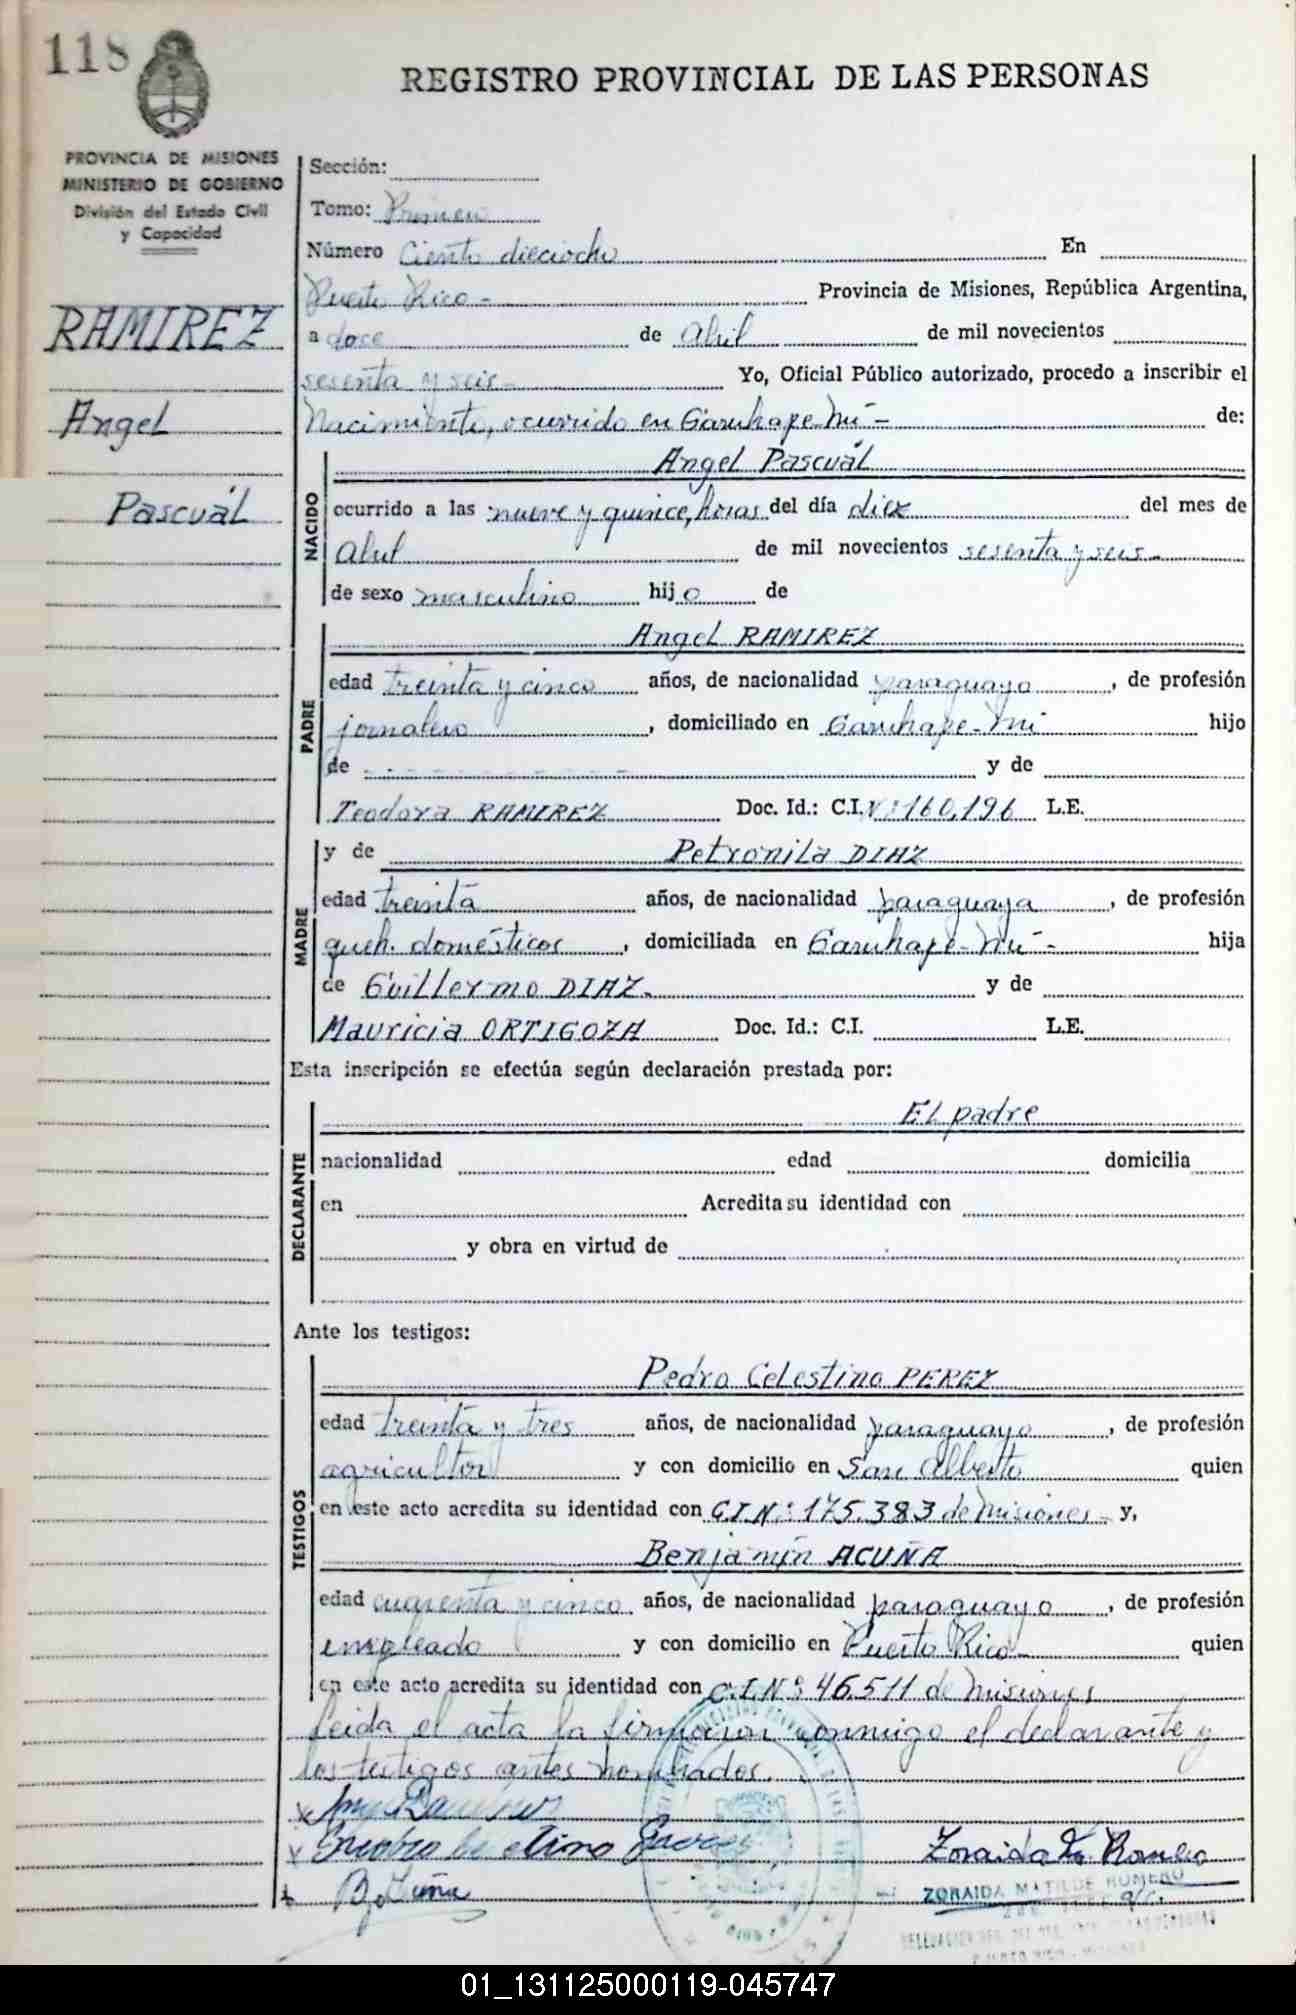 118
REGISTRO PROVINCIAL DE LAS PERSONAS
PROVINCIA DE MISIONES
MINISTERIO DE GOBIERNO
División del Estado Civil
y Capacidad
RAMIREZ
Angel
Pascuál
Sección:
Tomo: Primero
Número Ciento dieciocho En
Puerto Rico - Provincia de Misiones, República Argentina,
a doce de Abril de mil novecientos
sesenta y seis - Yo, Oficial Público autorizado, procedo a inscribir el
Nacimiento, ocurrido en Garuhape-Mí - de:
NACIDO
Angel Pascuál
ocurrido a las nueve y quince, horas del día diez del mes de
Abril de mil novecientos sesenta y seis -
de sexo masculino hijo de
PADRE
Angel RAMIREZ
edad treinta y cinco años, de nacionalidad paraguayo, de profesión
jornalero, domiciliado en Garuhape-Mí hijo
de - - - - - - - - y de
Teodora RAMIREZ Doc. Id.: C.I. Nº 160.196 L.E.
MADRE
y de Petronila DIAZ
edad treinta años, de nacionalidad paraguaya, de profesión
queh. domésticos, domiciliada en Garuhape-Mí - hija
de Guillermo DIAZ. y de
Mauricia ORTIGOZA Doc. Id.: C.I. L.E.
Esta inscripción se efectúa según declaración prestada por:
DECLARANTE
El padre
nacionalidad edad domicilia
en Acredita su identidad con
y obra en virtud de
Ante los testigos:
TESTIGOS
Pedro Celestino PEREZ
edad treinta y tres años, de nacionalidad paraguayo, de profesión
agricultor y con domicilio en San Alberto quien
en este acto acredita su identidad con C.I.Nº 175.383 de Misiones - y,
Benjamín ACUÑA
edad cuarenta y cinco años, de nacionalidad paraguayo, de profesión
empleado y con domicilio en Puerto Rico - quien
en este acto acredita su identidad con C.I.Nº 46.511 de Misiones
Leida el acta la firmaron conmigo el declarante y
los testigos antes nombrados.
Zoraida M. Romero
ZORAIDA MATILDE ROMERO
01_131125000119-045747